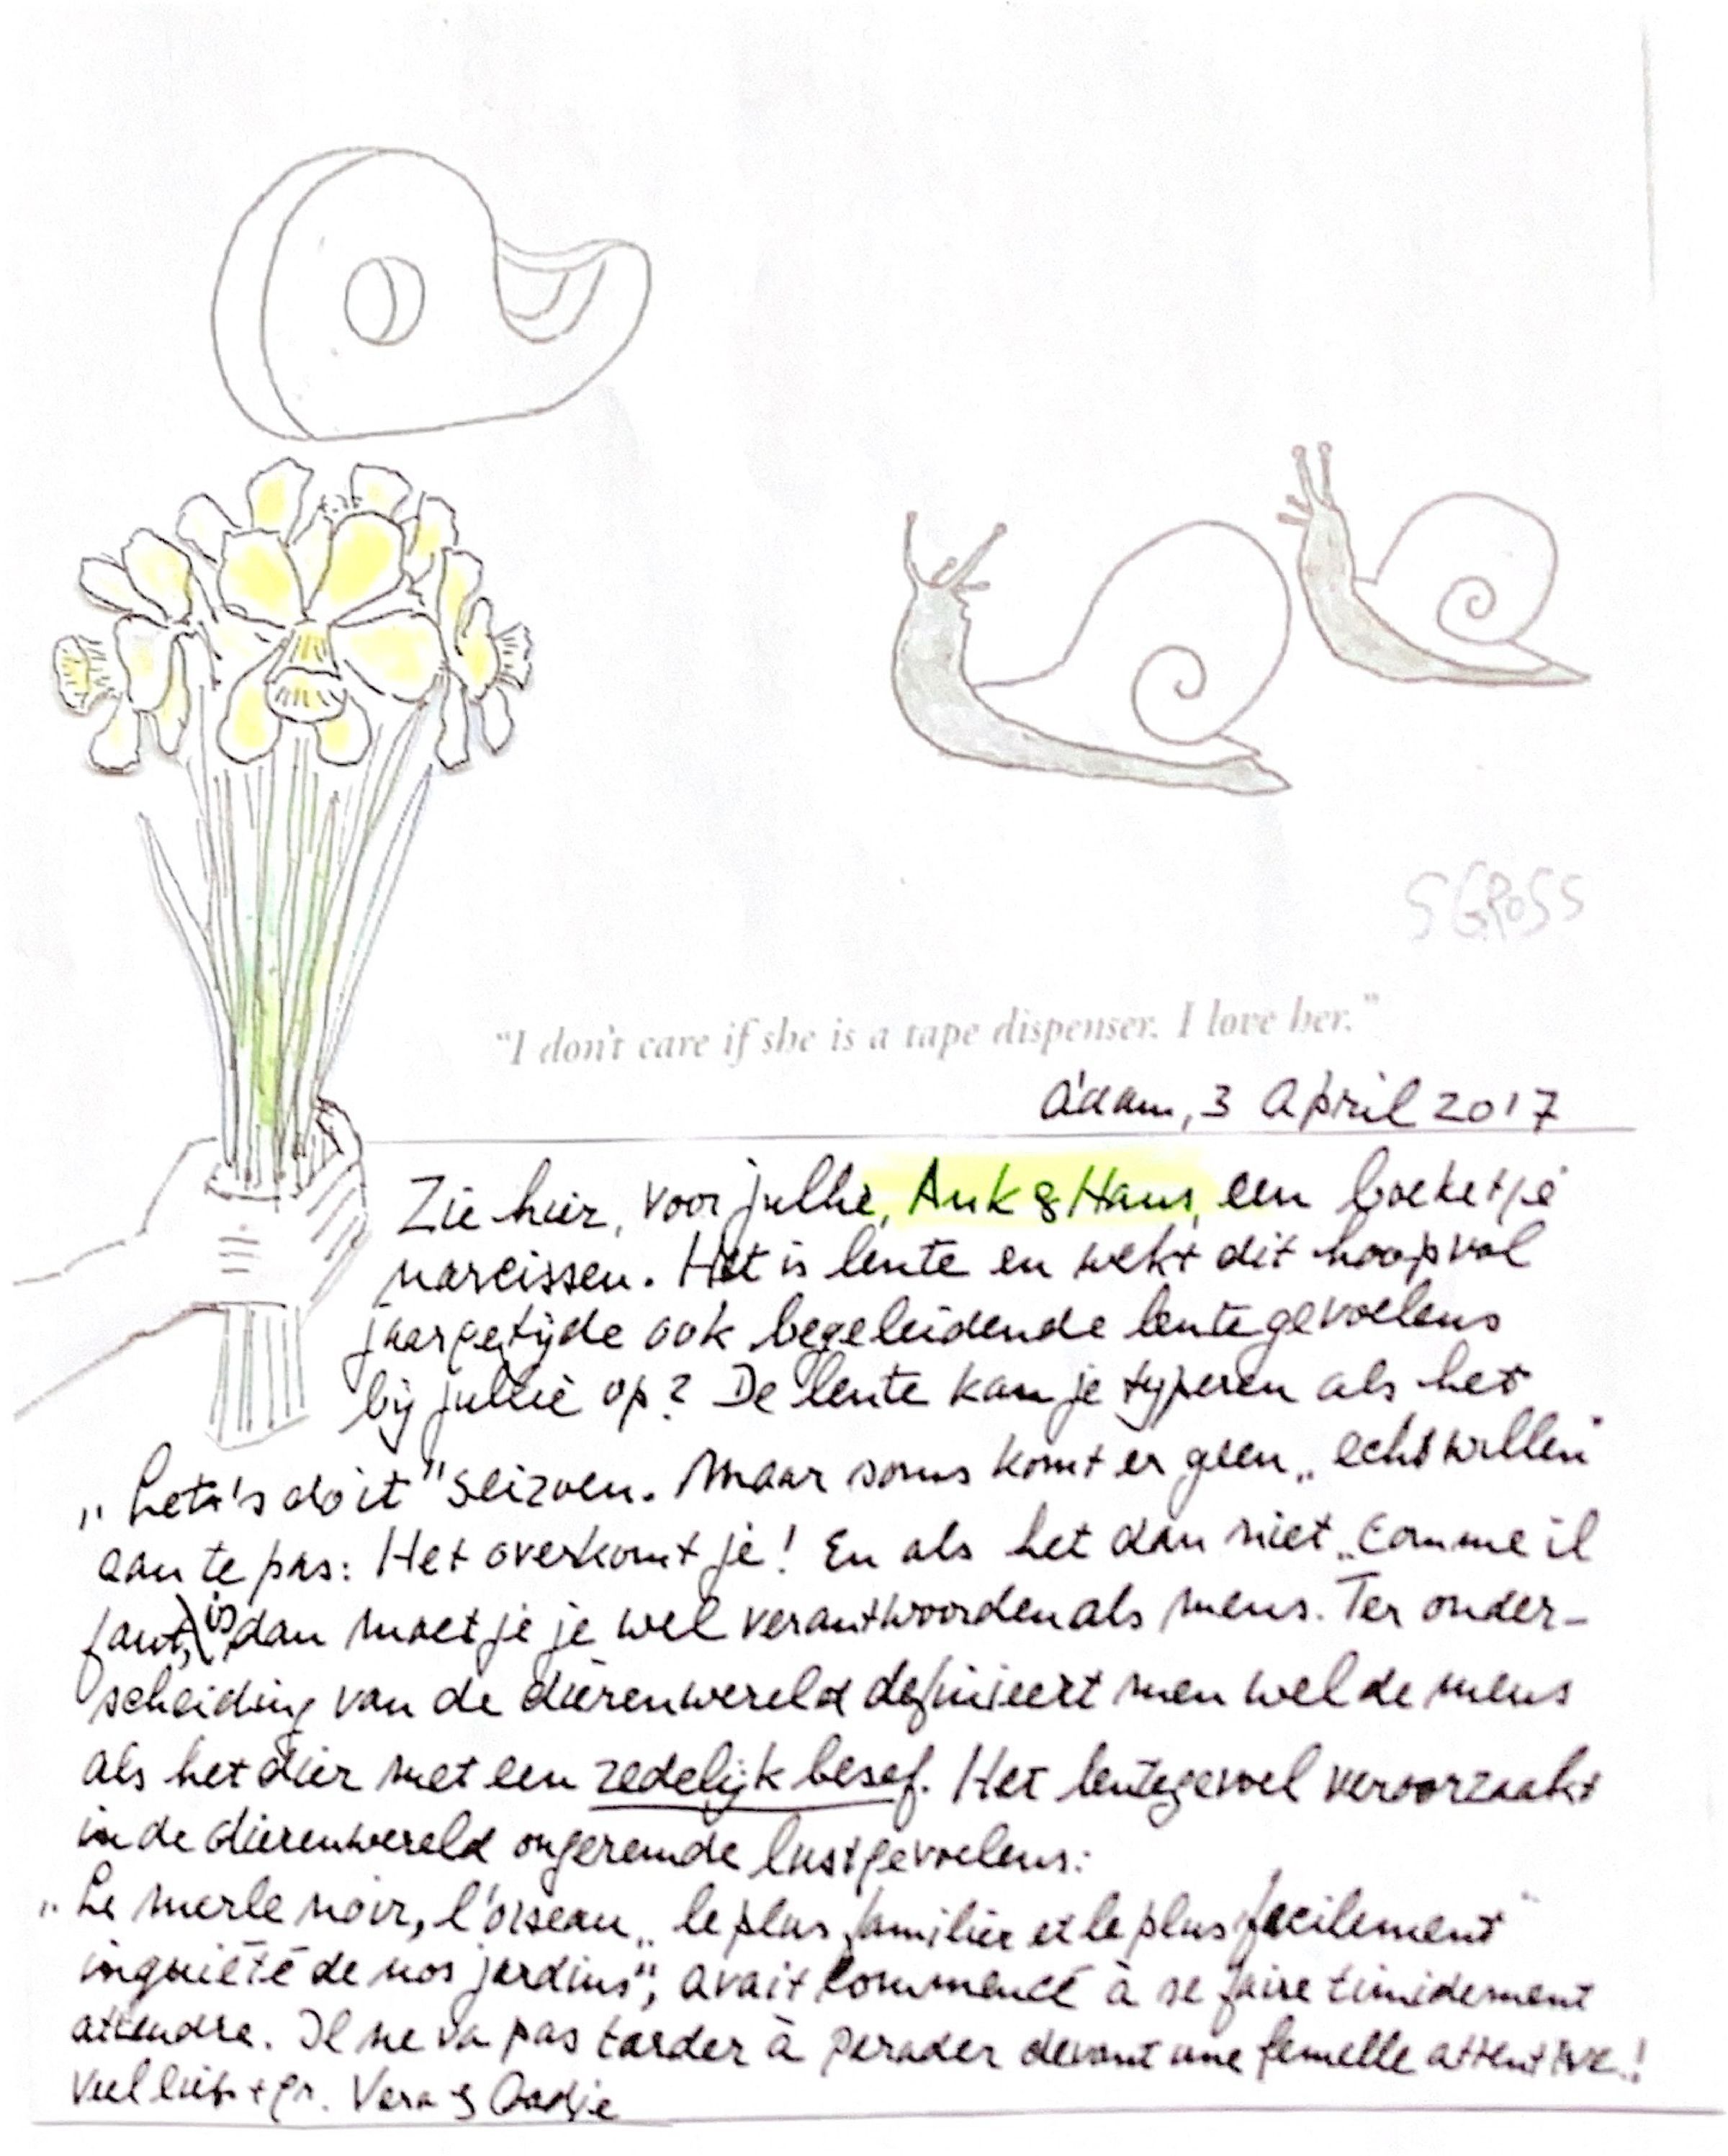 S GROSS
"I don't care if she is a tape dispenser. I love her."
A'dam, 3 April 2017
Zie hier, voor jullie, Ank & Hans, een boeketje
narcissen. Het is lente en wekt dit hoopvol
jaargetijde ook begeleidende lentegevoelens
bij jullie op? De lente kan je typeren als het
„Let's do it" seizoen. Maar soms komt er geen „echt willen"
aan te pas: Het overkomt je! En als het dan niet „comme il
faut" is, dan moet je je wel verantwoorden als mens. Ter onder-
scheiding van de dierenwereld definieert men wel de mens
als het dier met een zedelijk besef. Het lentegevoel veroorzaakt
in de dierenwereld ongeremde lustgevoelens:
„Le merle noir, l'oiseau „le plus familier et le plus facilement
inquiété de nos jardins", avait commencé à se faire timidement
attendre. Il ne va pas tarder à parader devant une femelle attentive!
Veel liefs + gr. Vera &